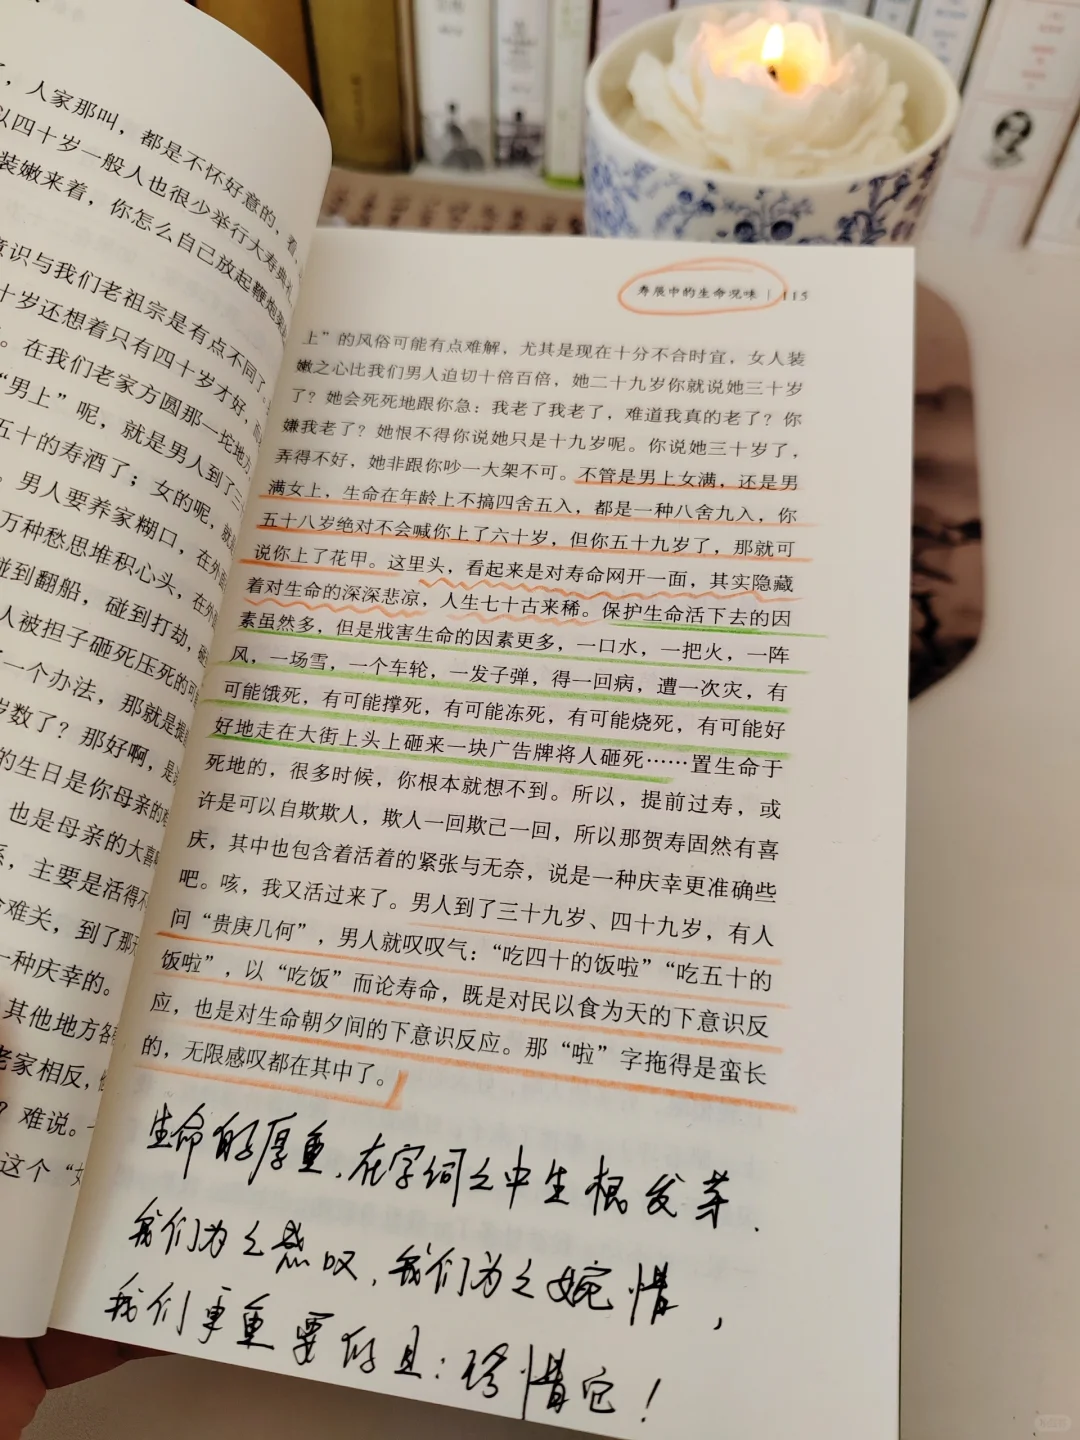 ，人家那叫，都是不怀好意的，看，
以四十岁一般人也很少举行大寿典礼
装嫩来着，你怎么自己放起鞭炮
意识与我们老祖宗是有点不同了。
十岁还想着只有四十岁才好，
。在我们老家方圆那一坨地方
“男上”呢，就是男人到了三
五十的寿酒了；女的呢，就
。男人要养家糊口，在外
万种愁思堆积心头，在外
碰到翻船，碰到打劫，
人被担子砸死压死的可能
了一个办法，那就是提
岁数了？那好啊，是
的生日是你母亲的难
也是母亲的大喜
系，主要是活得不
难关，到了那
一种庆幸的。
其他地方各
老家相反，
？难说。
这个“女
寿展中的生命况味 | 115
上”的风俗可能有点难解，尤其是现在十分不合时宜，女人装
嫩之心比我们男人迫切十倍百倍，她二十九岁你就说她三十岁
了？她会死死地跟你急：我老了我老了，难道我真的老了？你
嫌我老了？她恨不得你说她只是十九岁呢。你说她三十岁了，
弄得不好，她非跟你吵一大架不可。不管是男上女满，还是男
满女上，生命在年龄上不搞四舍五入，都是一种八舍九入，你
五十八岁绝对不会喊你上了六十岁，但你五十九岁了，那就可
说你上了花甲。这里头，看起来是对寿命网开一面，其实隐藏
着对生命的深深悲凉，人生七十古来稀。保护生命活下去的因
素虽然多，但是戕害生命的因素更多，一口水，一把火，一阵
风，一场雪，一个车轮，一发子弹，得一回病，遭一次灾，有
可能饿死，有可能撑死，有可能冻死，有可能烧死，有可能好
好地走在大街上头上砸来一块广告牌将人砸死……置生命于
死地的，很多时候，你根本就想不到。所以，提前过寿，或
许是可以自欺欺人，欺人一回欺己一回，所以那贺寿固然有喜
庆，其中也包含着活着的紧张与无奈，说是一种庆幸更准确些
吧。咳，我又活过来了。男人到了三十九岁、四十九岁，有人
问“贵庚几何”，男人就叹叹气：“吃四十的饭啦”“吃五十的
饭啦”，以“吃饭”而论寿命，既是对民以食为天的下意识反
应，也是对生命朝夕间的下意识反应。那“啦”字拖得是蛮长
的，无限感叹都在其中了。
生命的厚重，在字词之中生根发芽．
我们为之感叹，我们为之婉惜，
我们更重要的是：珍惜它！